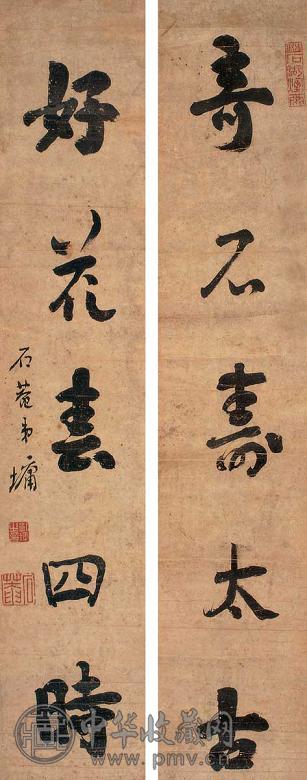 奇石壽太古
好花春四時
石菴弟墉
中华收藏网
www.pmv.cn